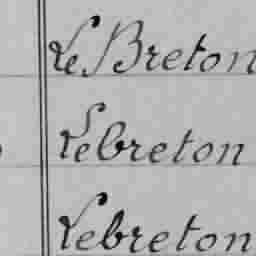 Le Breton
Lebreton
Lebreton